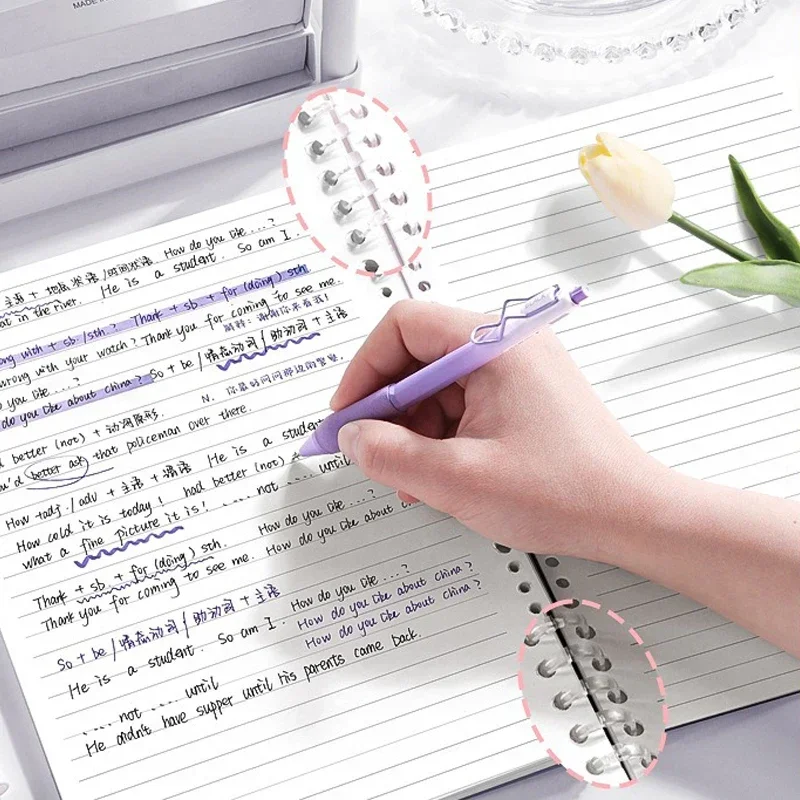 MADE IN
主语 + 地点状语/时间状语. How do you like ...?
at in the river. He is a student. So am I.
ong with + sb/sth? Thank + sb + for (doing) sth
wrong with your watch? Thank you for coming to see me.
翻译: 谢谢你来看我!
o you like ...? So + be / 情态动词 / 助动词 + 主语
do you like about china?
N. 你最好问问那边的警察.
d better (not) + 动词原形.
u'd better ask that policeman over there.
How + adj. / adv + 主语 + 谓语 He is a student
How cold it is today! had better (not) ... until
what a fine picture it is! .... not
Thank + sb. + for (doing) sth. How do you like ...?
Thank you for coming to see me. How do you like about c
So + be / 情态动词 / 助动词 + 主语 How do you like ...?
He is a student. So am I. How do you like about china?
How do you like about china?
.... not .... until
He didn't have supper until his parents came back.